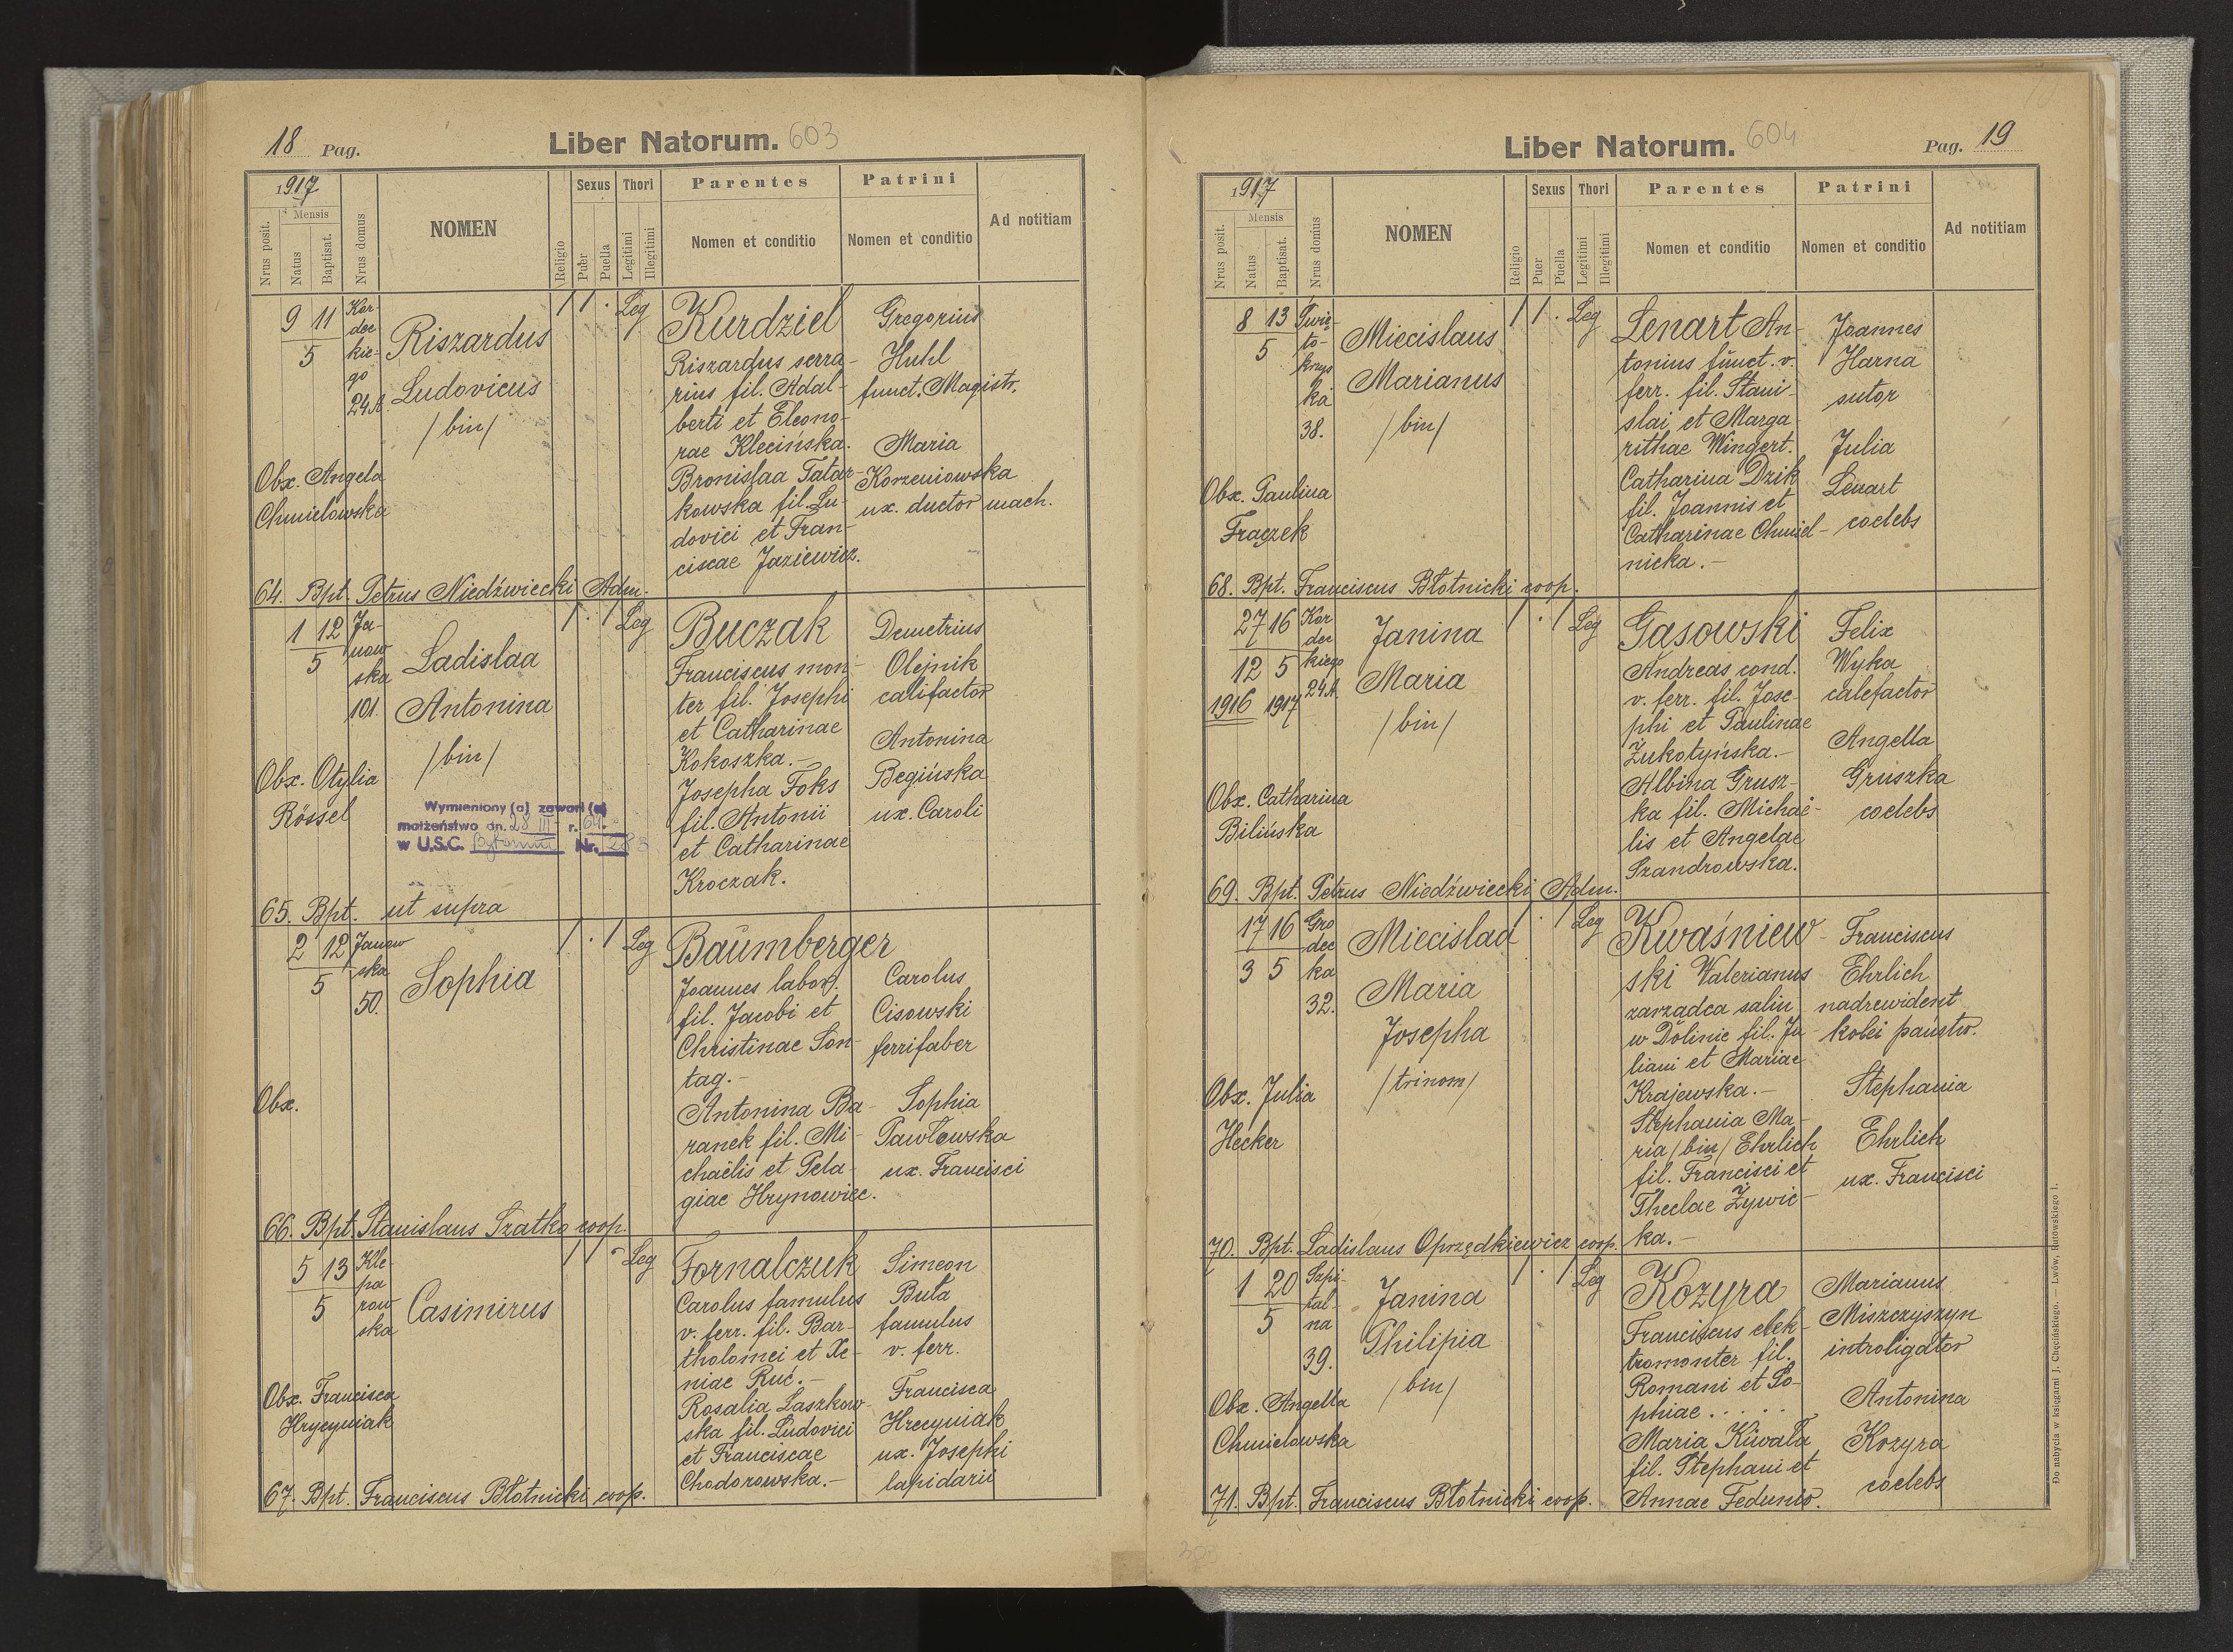 18 Pag.
Liber Natorum. 603
1917
Mensis
Nrus posit.
Natus
Baptisat.
Nrus domus
NOMEN
Religio
Sexus
Puer
Puella
Thori
Legitimi
Illegitimi
Parentes
Nomen et conditio
Patrini
Nomen et conditio
Ad notitiam
9 11
5
Kor-
dec
kie-
go
24A
Riszardus
Ludovicus
/bin/
1 1 . Leg
Kurdziel
Riszardus serra-
rius fil. Adal-
berti et Eleono-
rae Klecińska.
Bronislaa Tatar-
kowska fil. Lu-
dovici et Fran-
ciscae Jaziewicz.
Gregorius
Huhl
funct. Magistr.
Maria
Korzeniowska
ux. ductor mach.
Obx. Angela
Chmielowska
64. Bpt. Petrus Niedźwiecki Adm.
1 12
5
Ja-
now
ska
101.
Ladislaa
Antonina
/bin/
1 . 1 Leg
Buczak
Franciscus mon-
ter fil. Josephi
et Catharinae
Kokoszka.-
Josepha Foks
fil. Antonii
et Catharinae
Kroczak.
Demetrius
Olejnik
califactor
Antonina
Begińska
ux. Caroli
Obx. Otylia
Rössel
Wymieniony (a) zawarł (a)
małżeństwo dn. 28 III r. 64.
w U.S.C. Bytomiu Nr. 283
65. Bpt. ut supra
2 12
5
Janow
ska
50.
Sophia
1 . 1 Leg
Baumberger
Joannes labor.
fil. Jacobi et
Christinae Son-
tag.-
Antonina Ba-
ranek fil. Mi-
chaëlis et Pela-
giae Hrynowiec.
Carolus
Cisowski
ferrifaber
Sophia
Pawłowska
ux. Francisci
Obx.
66. Bpt. Stanislaus Szatko coop.
5 13
5
Kle-
pa
row
ska
Casimirus
1 1 - Leg
Fornalczuk
Carolus famulus
v. ferr. fil. Bar-
tholomei et Xe-
niae Ruć.-
Rosalia Laszkow-
ska fil. Ludovici
et Franciscae
Chodorowska.-
Simeon
Buła
famulus
v. ferr.
Francisca
Hrecyniak
ux. Josephi
lapidarii
Obx. Francisca
Hrycyniak
67. Bpt. Franciscus Błotnicki coop.
Liber Natorum. 604
Pag. 19
1917
Mensis
Nrus posit.
Natus
Baptisat.
Nrus domus
NOMEN
Religio
Sexus
Puer
Puella
Thori
Legitimi
Illegitimi
Parentes
Nomen et conditio
Patrini
Nomen et conditio
Ad notitiam
8 13
5
Świę-
to-
krzys
ka
38.
Miecislaus
Marianus
/bin/
1 1 . Leg
Lenart An-
tonius funct. v.
ferr. fil. Stani-
slai et Marga
rithae Wingert.
Catharina Dzik
fil. Joannis et
Catharinae Chmiel-
nicka.-
Joannes
Harna
sutor
Julia
Lenart
coelebs
Obx. Paulina
Frączek
68. Bpt. Franciscus Błotnicki coop.
27 16
12 5
1916 1917
Kor
dec
kiego
24A.
Janina
Maria
/bin/
1 . 1 Leg
Gasowski
Andreas cond.
v. ferr. fil. Jose-
phi et Paulinae
Żukotyńska.-
Albina Grusz-
ka fil. Michaë-
lis et Angelae
Szandrowska.
Felix
Wyka
calefactor
Angella
Gruszka
coelebs
Obx. Catharina
Bilińska
69. Bpt. Petrus Niedźwiecki Adm.
17 16
3 5
Gro
dec
ka
32.
Miecislaa
Maria
Josepha
/trinom/
. 1 Leg
Kwaśniew-
ski Valerianus
zarzadca salin
w Dolinie fil. Ju-
liani et Mariae
Krajewska.-
Stephania Ma-
ria /bin/ Ehrlich
fil. Francisci et
Theclae Żywic-
ka.-
Franciscus
Ehrlich
nadrewident
kolei państw.
Stephania
Ehrlich
ux. Francisci
Obx. Julia
Hecker
70. Bpt. Ladislaus Oprzędkiewicz coop.
1 20
5
Szpi-
tal-
na
39.
Janina
Philipia
/bin/
1 . 1 Leg
Kozyra
Franciscus elek-
tromonter fil.
Romani et So-
phiae . . . . .
Maria Kuwała
fil. Stephani et
Annae Fedunio.
Marianus
Miszczyszyn
introligator
Antonina
Kozyra
coelebs
Obx. Angella
Chmielowska
71. Bpt. Franciscus Błotnicki coop.
Do nabycia w księgarni J. Chęcińskiego. — Lwów, Rutowskiego 1.